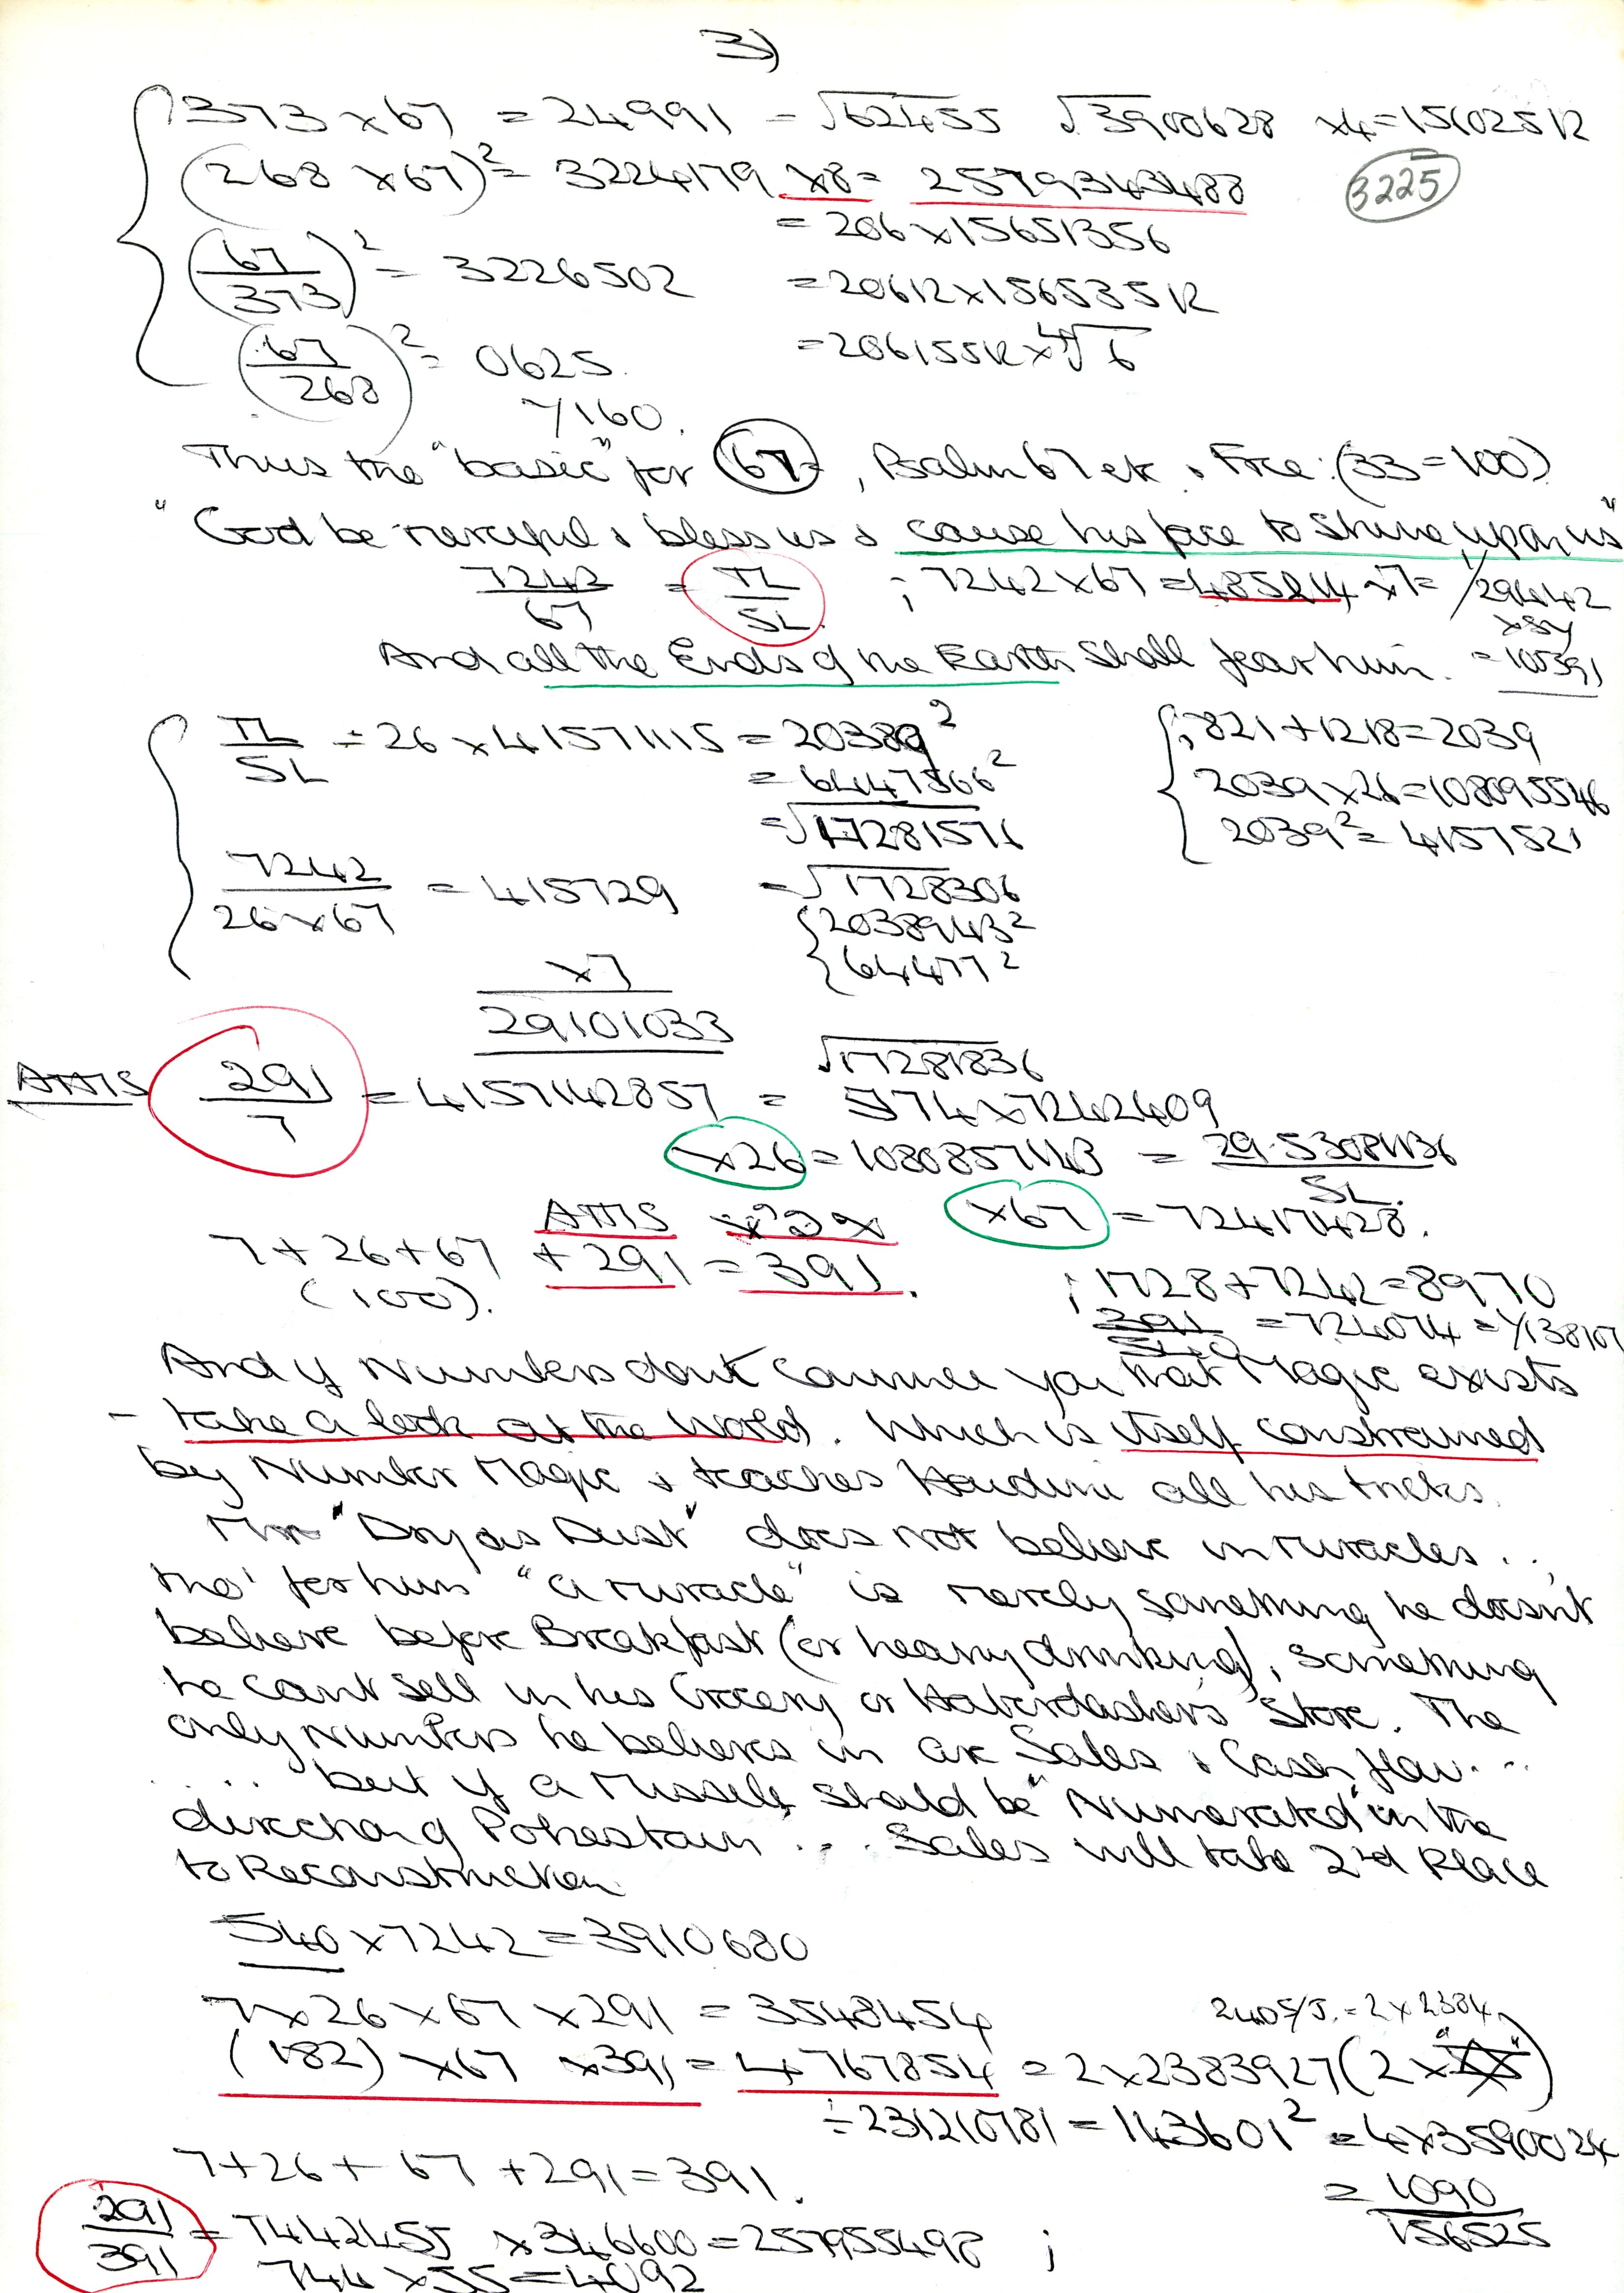 3)
373 x 67 = 24991 = √62455 √3900628 x4=1560251R
(268 x 67)² = 3224179 x8= 2579343488
3225
= 206 x 15651356
(67/373)² = 3226502 = 20612 x 1565351R
(67/268)² = 0625. = 2061551R x ⁴√6
1/160.
Thus the "basic" for 67, Psalm 67 etc. Free: (33 = 100)
"God be merciful & bless us & cause his face to shine upon us"
7242/67 = TL/SL. ; 7242 x 67 = 485214 x 7 = 1/29442
x SY
And all the Ends of the Earth shall fear him. = 10391
TL/SL ÷ 26 x 41571115 = 20389² ; 821 + 1218 = 2039
= 6447566² 2039 x 26 = 108095546
= √17281571 2039² = 4157521
7242/26 x 67 = 415729 = √1728306
2038943²
64477²
x7
29101033
√17281836
291/7 = 4157142857 = 574 x 7242409
x26 = 1080857143 = 29.53081136/SL.
x67 = 72417428.
7 + 26 + 67 + 291 = 391.
(100). ; 1728 + 7242 = 8970
= 724074 = 1/138107
And if Numbers dont convince you that Magic exists
- take a look at the World. Which is itself constrained
by Number Magic & teaches Houdini all his tricks.
"Dry as Dust" does not believe in miracles..
tho' for him "a miracle" is merely something he doesn't
believe before Breakfast (or heavy drinking), something
he cant sell in his Grocery or Haberdashers Store. The
only Numbers he believes in are Sales & Cash flow...
.... but if a Missile should be "Numerated" in the
direction of Pohestown ... Sales will take 2nd Place
to Reconstruction.
540 x 7242 = 3910680
7 x 26 x 67 x 291 = 3548454 240S/J. = 2 x 2384
(182) x 67 x 391 = 4767854 = 2 x 2383927 (2 x
÷ 231210781 = 143601² = 4 x 3590024
7 + 26 + 67 + 291 = 391. = 1090/156525
291/391 = 7442455 x 346600 = 257955498 ;
744 x 55 = 4092